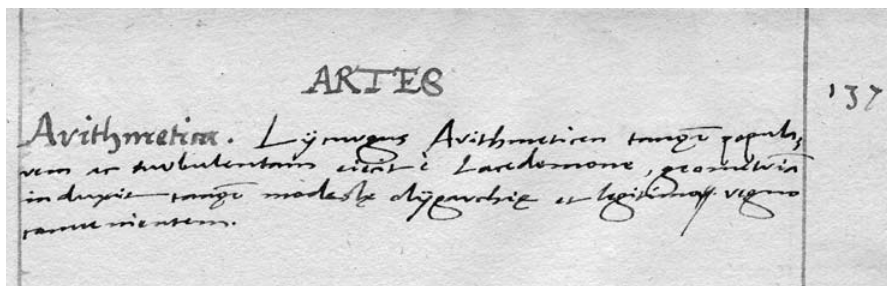 ARTES
137
Arithmetica. Lÿcurgus Arithmeticen tanq̄ popula-
rem ac turbulentam eiecit è Lacedemone, geometriā
induxit tanq̄ modestę olÿgarchię et legitimo regno
conuenientem.